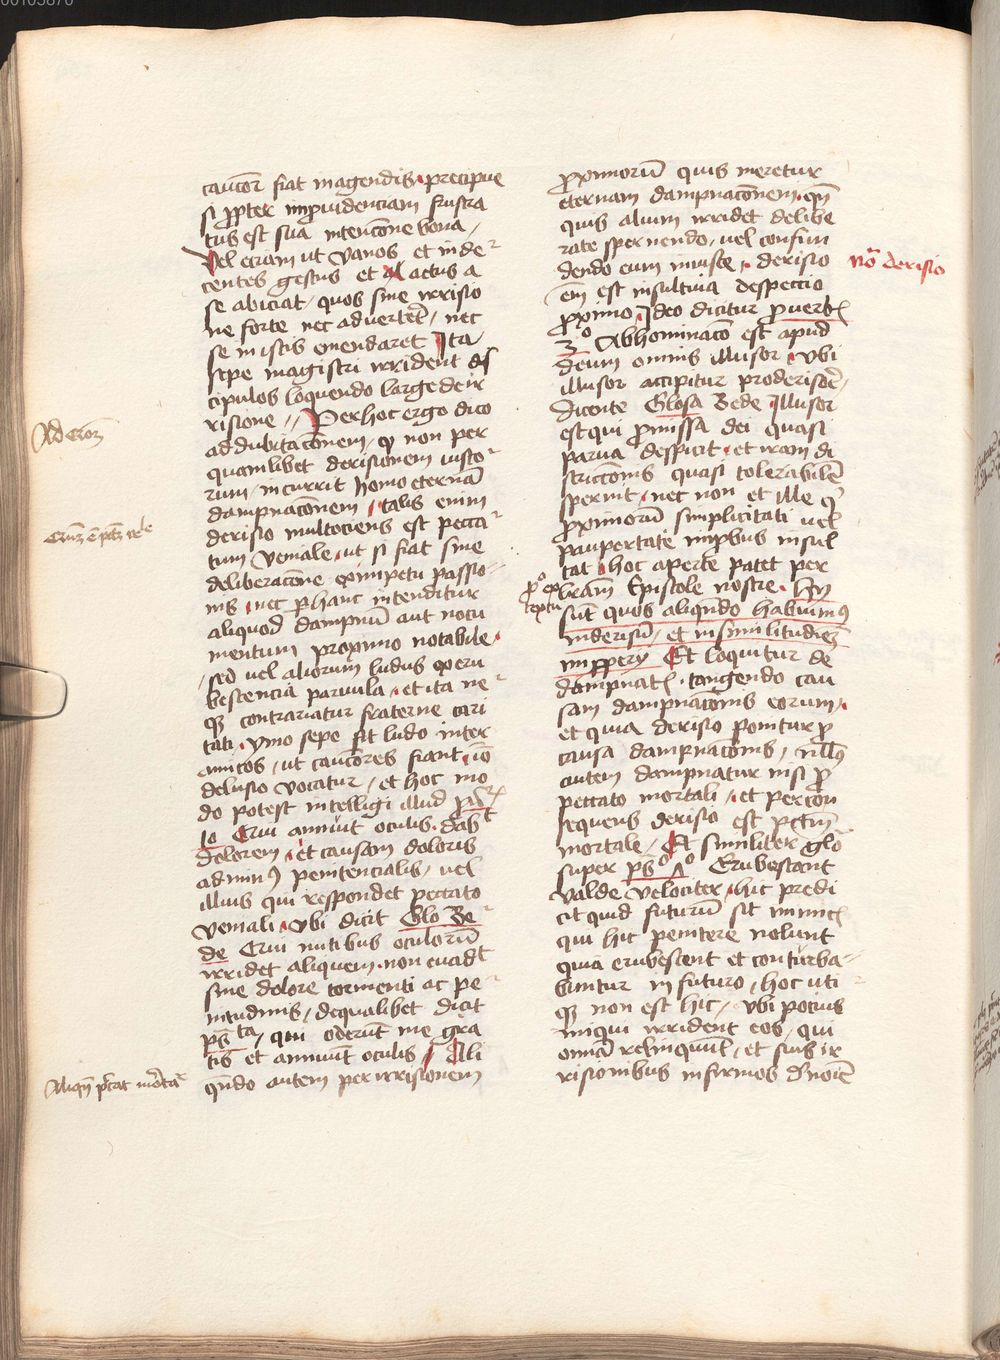 00103870
caucior fiat in agendis precipue
si propter improuidenciam frustra
tus est sua intencone bona
Vel eciam ut vanos et inde
centes gestus et actus a
se abiciat quos sine irrisio
ne forte nec aduerteret nec
se in istis emendaret Ita
sepe magistri irrident dis
cipulos loquendo large de ir
risione Per hoc ergo dico
ad dubitaconem q non per
quamlibet derisionem iusto
rum incurrit homo eternam
dampnaconem talis enim
derisio multociens est pecca
tum veniale ut si fiat sine
deliberacone ex impetu passio
nis nec per hanc intenditur
aliquod dampnum aut nocu
mentum proximo notabile
sed uel aliorum ludus eperu
bescencia paruula et ita ne
q contrariatur fraterne cari
tati ymo sepe fit ludo inter
amicos ut cauciores fiant
delusio vocatur et hoc mo
do potest intelligi illud
10 Qui annuit oculis dabit
dolorem et causam doloris
ad min9 penitencialis uel
illius qui respondet peccato
veniali vbi dicit Glo Be
de Qui nutibus oculorum
irridet aliquem non euadit
sine dolore tormenti ac pe
nitudinis de qualibet dicit
ps ta qui oderunt me gra
tis et annuunt oculis Ali
qndo autem per irrisionem
proximorum quis meretur
eternam dampnaconem qn
quis alium irridet delibe
rate spernendo uel confun
dendo eum iniuste derisio
em est insultiua despeccio
proximo Ideo dicitur prouerb
3o Abhominaco est apud
deum omnis illusor vbi
illusor accipitur pro derisore
dicente Glosa Bede Illusor
est qui promissa dei quasi
parua despicit et iram di
striccionis quasi tolerabilem
spernit nec non et ille q
proximorum simplicitati uel
paupertate in probus insul
tat hoc aperte patet per
bram Epistole nostre Hij
sunt quos aliqndo habuim9
in derisum et in similitudiem
improperij Et loquitur de
dampnatis tangendo cau
sam dampnaconis eorum
et quia derisio ponitur pro
causa dampnaconis nullus
autem dampnatur nisi pro
peccato mortali et per con
sequens derisio est pctm
mortale Et similiter glo
super ps Erubescant
valde velociter hic predi
cit quid futurum sit inimicis
qui hic penitere nolunt
quia erubescent et conturba
buntur in futuro hoc uti
q non est hic vbi pocius
iniqui irrident eos qui
omnia relinquunt et suis ir
risionibus infirmos
no derisio